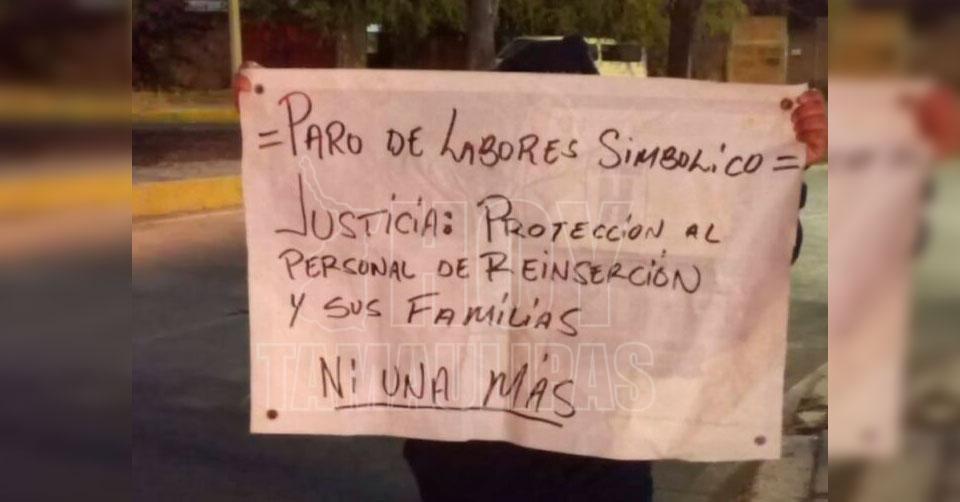 =PARO DE LABORES SIMBOLICO=
JUSTICIA: PROTECCION AL
PERSONAL DE REINSERCIÓN
Y SUS FAMILIAS
NI UNA MÁS
HOY
TAMAULIPAS